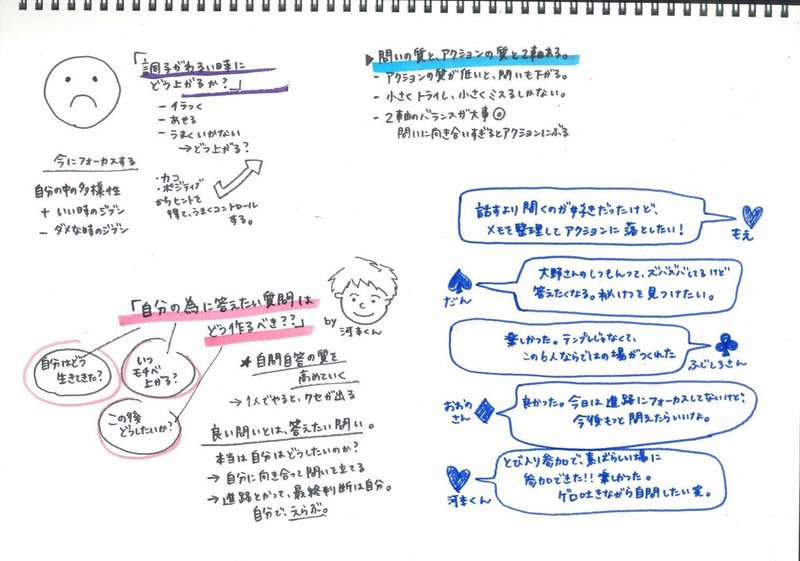 「調子がわるい時に
どう上がるか？」
- イラつく
- あせる
- うまくいかない
→どう上がる？
今にフォーカスする
自分の中の多様性
+ いい時のジブン
- ダメな時のジブン
・カコ
・ポジティブ
からヒントを
得て、うまくコントロール
する。
▶ 問いの質と、アクションの質と2軸ある。
- アクションの質が低いと、問いも下がる。
- 小さくトライし、小さくミスるしかない。
- 2軸のバランスが大事◎
問いに向き合いすぎるとアクションにぶる
「自分の為に答えたい質問は
どう作るべき？？」
by
河本くん
自分はどう
生きてきた？
いつ
モチベ
上がる？
この後
どうしたいか？
★ 自問自答の質を
高めていく
→ 1人でやると、クセが出る
良い問いとは、答えたい問い。
本当は自分はどうしたいのか？
→ 自分に向き合って問いを立てる
→ 進路とかって、最終判断は自分。
自分で、えらぶ。
話すより聞くのが好きだったけど、
メモを整理してアクションに落としたい！
もえ
大野さんのしつもんって、ズバズバしてるけど
答えたくなる。秘けつを見つけたい。
だん
楽しかった。テンプレじゃなくて、
この6人ならではの場がつくれた
ふじしろさん
良かった。今日は進路にフォーカスしてないけど、
今後もっと問えたらいいけよ。
おおの
さん
とび入り参加で、素ばらしい場に
参加できた!! 楽しかった。
ゲロ吐きながら自問したい笑。
河本くん